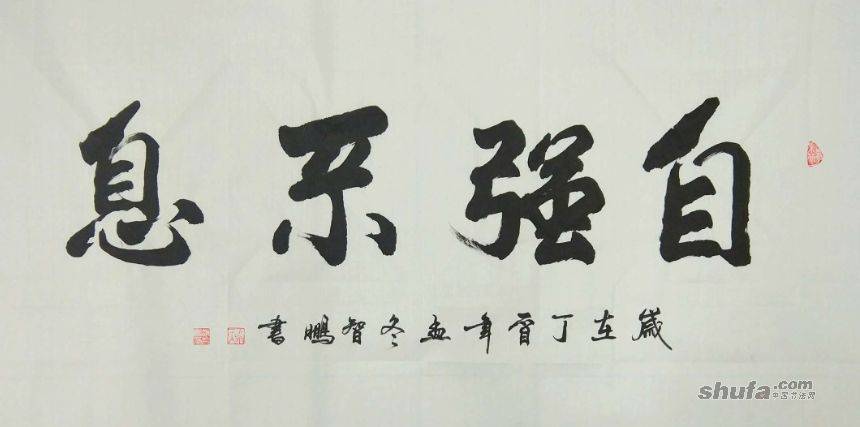 自强不息
歲在丁酉年孟冬智鵬書
shufa.com
中国书法网